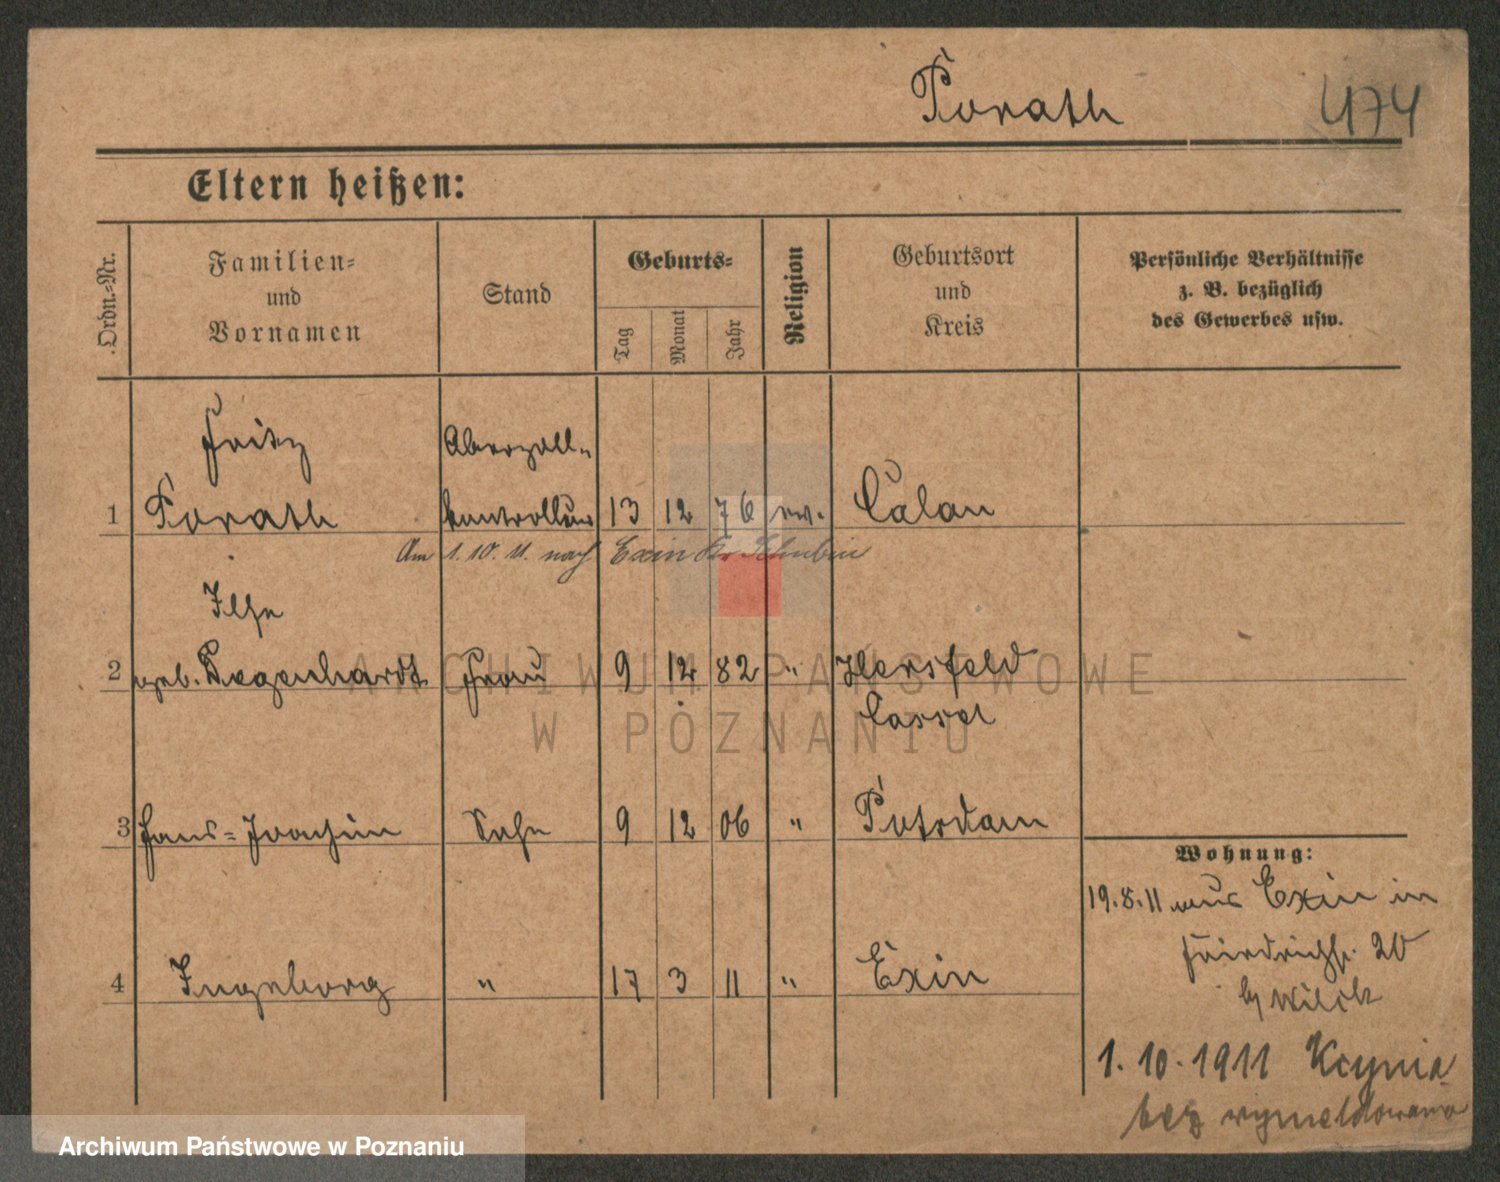 Porath 474
Eltern heißen:
Ordn.-Nr.
Familien- und Vornamen
Stand
Geburts-
Tag
Monat
Jahr
Religion
Geburtsort und Kreis
Persönliche Verhältnisse
z. B. bezüglich
des Gewerbes usw.
Fritz Oberzoll-
1 Porath kontrolleur 13 12 76 ev. Calau
Am 1.10.11. nach Exin Kr Schubin
Ilse
2 geb. Degenhardt Frau 9 12 82 " Hersfeld
Cassel
3 Hans-Joachim Sohn 9 12 06 " Potsdam
4 Ingeborg " 17 3 11 " Exin
Wohnung:
19.8.11 aus Exin in
Friedrichstr. 20
1.10.1911 Kcynia
bez wymeldowania
ARCHIWUM PAŃSTWOWE
W POZNANIU
Archiwum Państwowe w Poznaniu